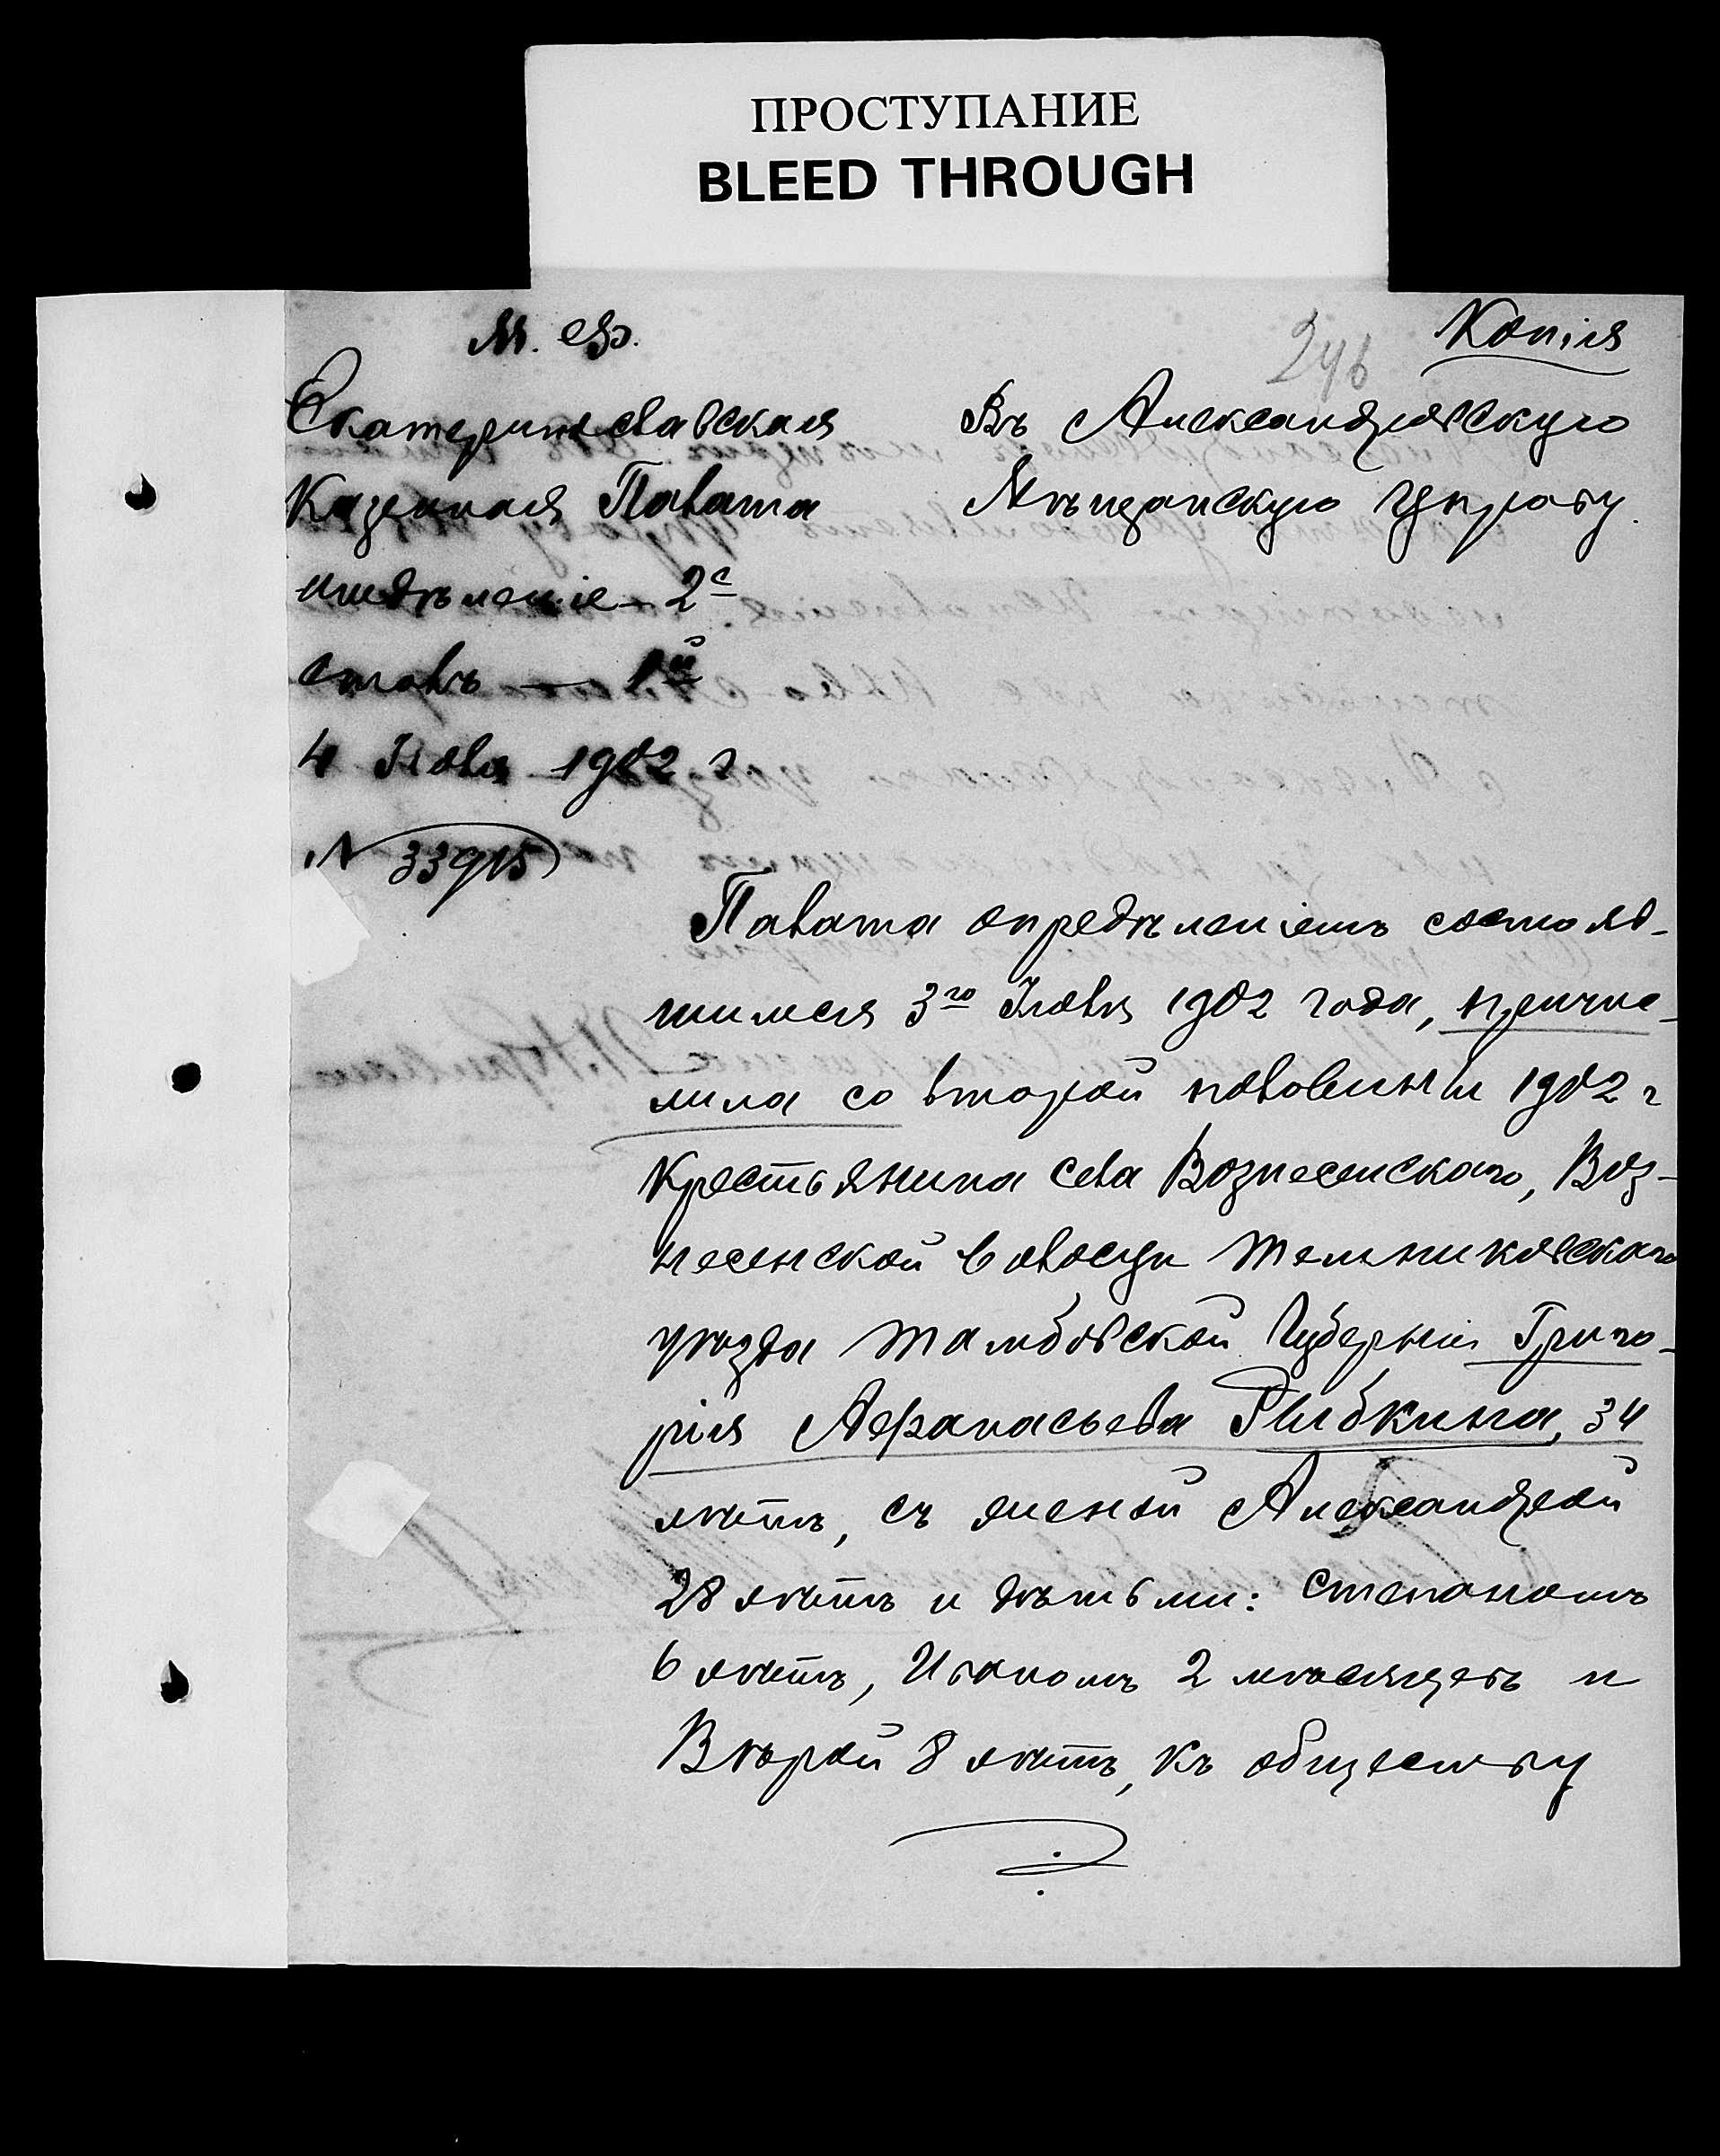 ПРОСТУПАНИЕ
BLEED THROUGH
М. Ф.
246
Копія
Екатеринославская
Казенная Палата
отдѣленіе 2е
столъ — 1й
4 Іюля 1902 г
№ 33915
Въ Александровскую
Мѣщанскую Управу.
Палата опредѣленіемъ состояв-
шимся 3го Іюля 1902 года, причис-
лила со второй половины 1902 г
Крестьянина села Вознесенскаго, Воз-
несенской волости Темниковскаго
уѣзда Тамбовской Губерніи Григо-
рія Афанасьева Рыбкина, 34
лѣтъ, съ женой Александрой
28 лѣтъ и дѣтьми: Степаномъ
6 лѣтъ, Иваномъ 2 мѣсяцевъ и
Вѣрой 8 лѣтъ, къ обществу